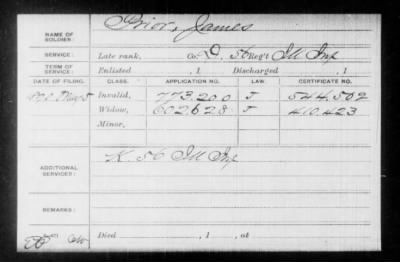 Prior, James
NAME OF SOLDIER:
SERVICE: Late rank, Co. D, 56 Reg't Ill Inf
TERM OF SERVICE: Enlisted , 1 Discharged , 1
DATE OF FILING. CLASS. APPLICATION NO. LAW. CERTIFICATE NO.
Invalid, 773.200 J 544.502
Widow, 602.628 J 410.423
Minor,
ADDITIONAL SERVICES: K. 56 Ill Inf
REMARKS:
Died , 1 , at